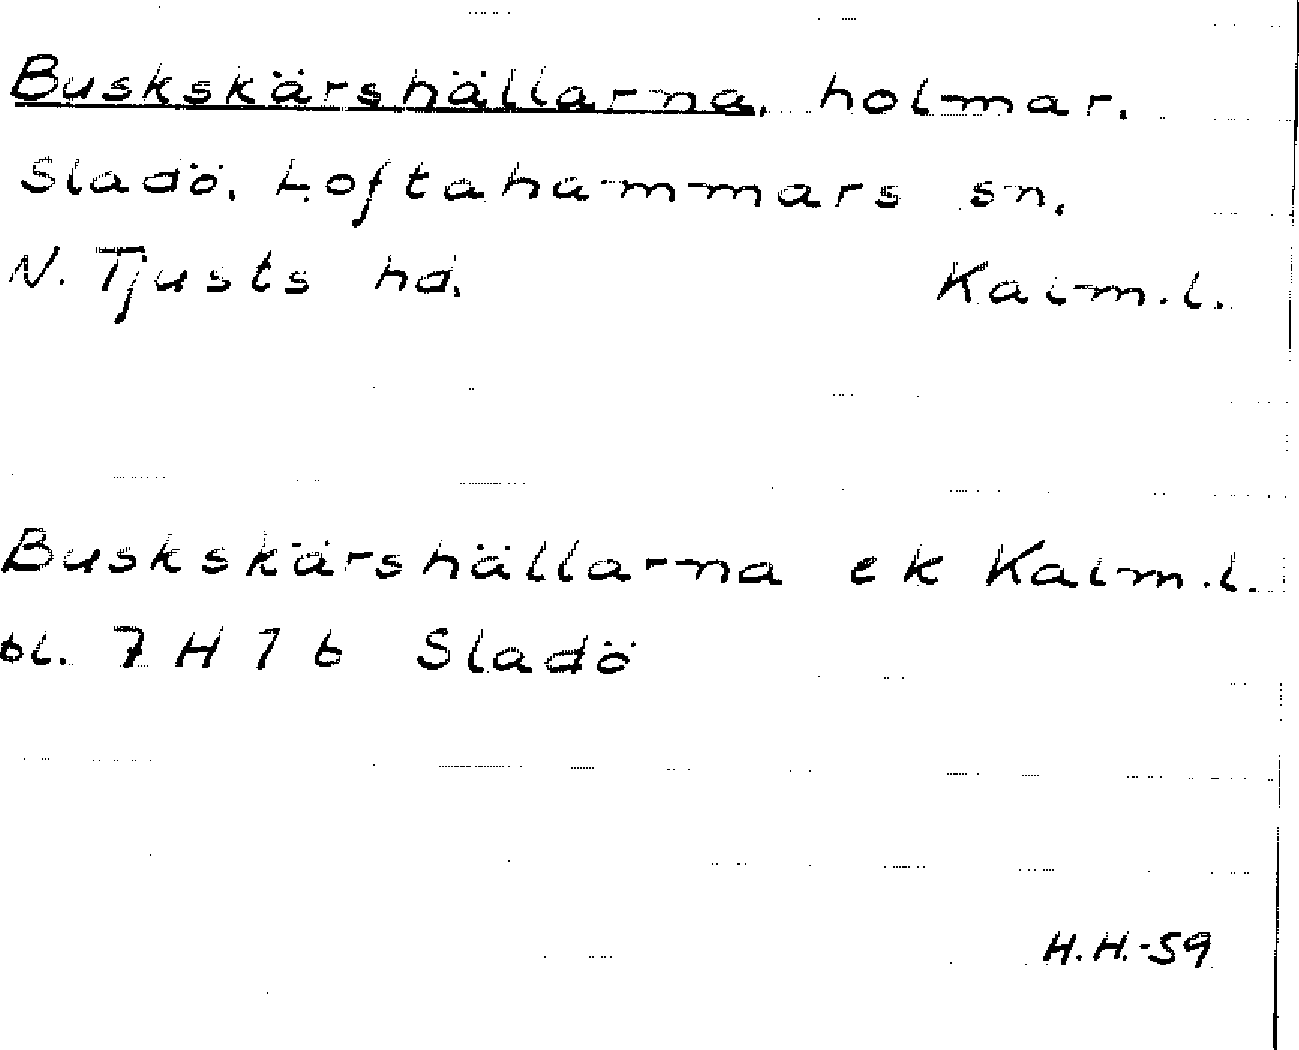 Buskskärshällarna, holmar.
Sladö, Loftahammars sn.
N. Tjusts hd. Kalm.l.
Buskskärshällarna ek Kalm.l.
bl. 7 H 7 b Sladö
H.H.-59